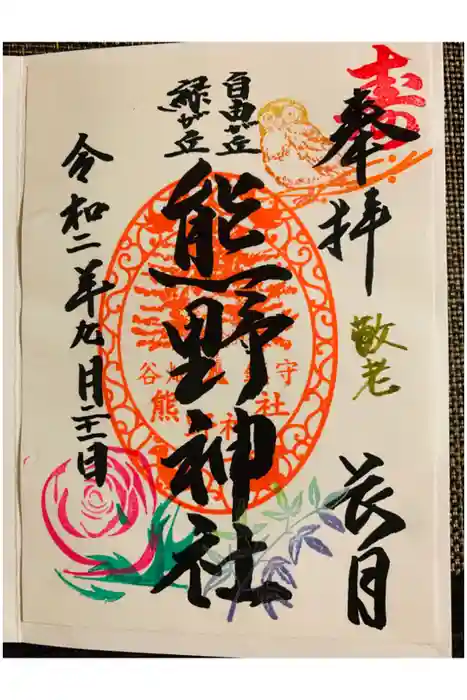 寿
奉拝
敬老
長月
自由が丘
緑が丘
熊野神社
令和二年九月二十一日